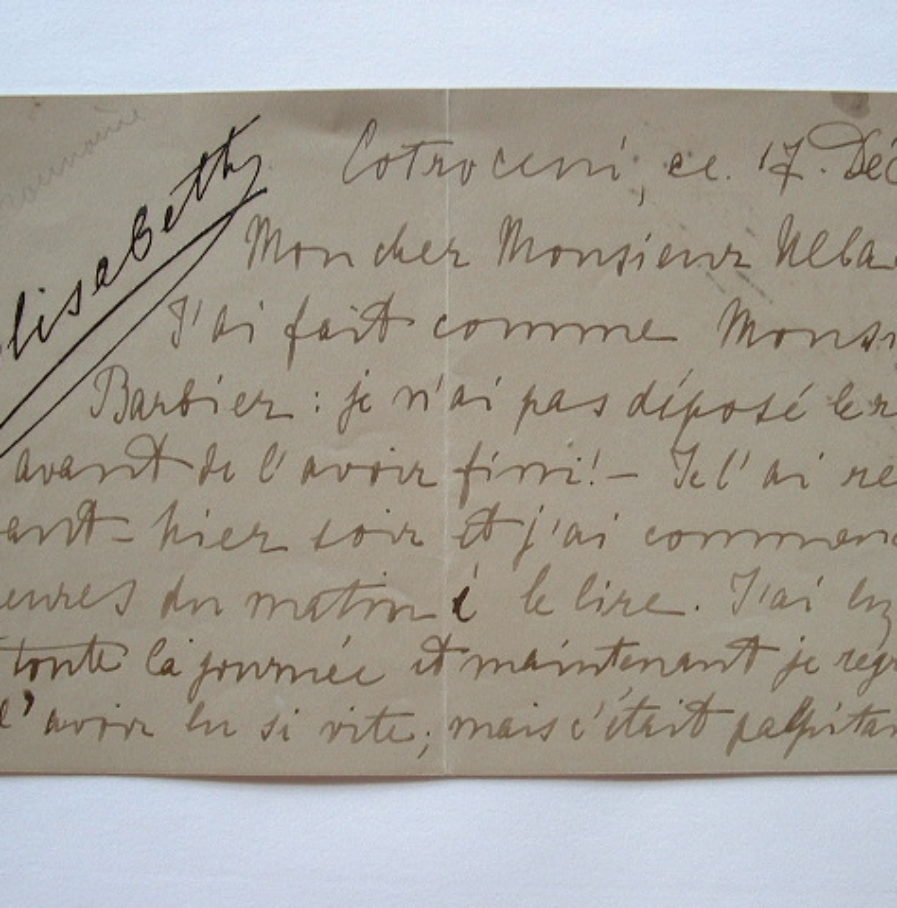 Roumanie
Elisabeth
Cotroceni, ce 17. Déc
Mon cher Monsieur Ulba
J'ai fait comme Monsi
Barbier: je n'ai pas déposé le
avant de l'avoir fini! – Je l'ai re
ant-hier soir et j'ai commen
eures du matin à le lire. J'ai lu
toute la journée et maintenant je regr
l'avoir lu si vite; mais c'était palpitan